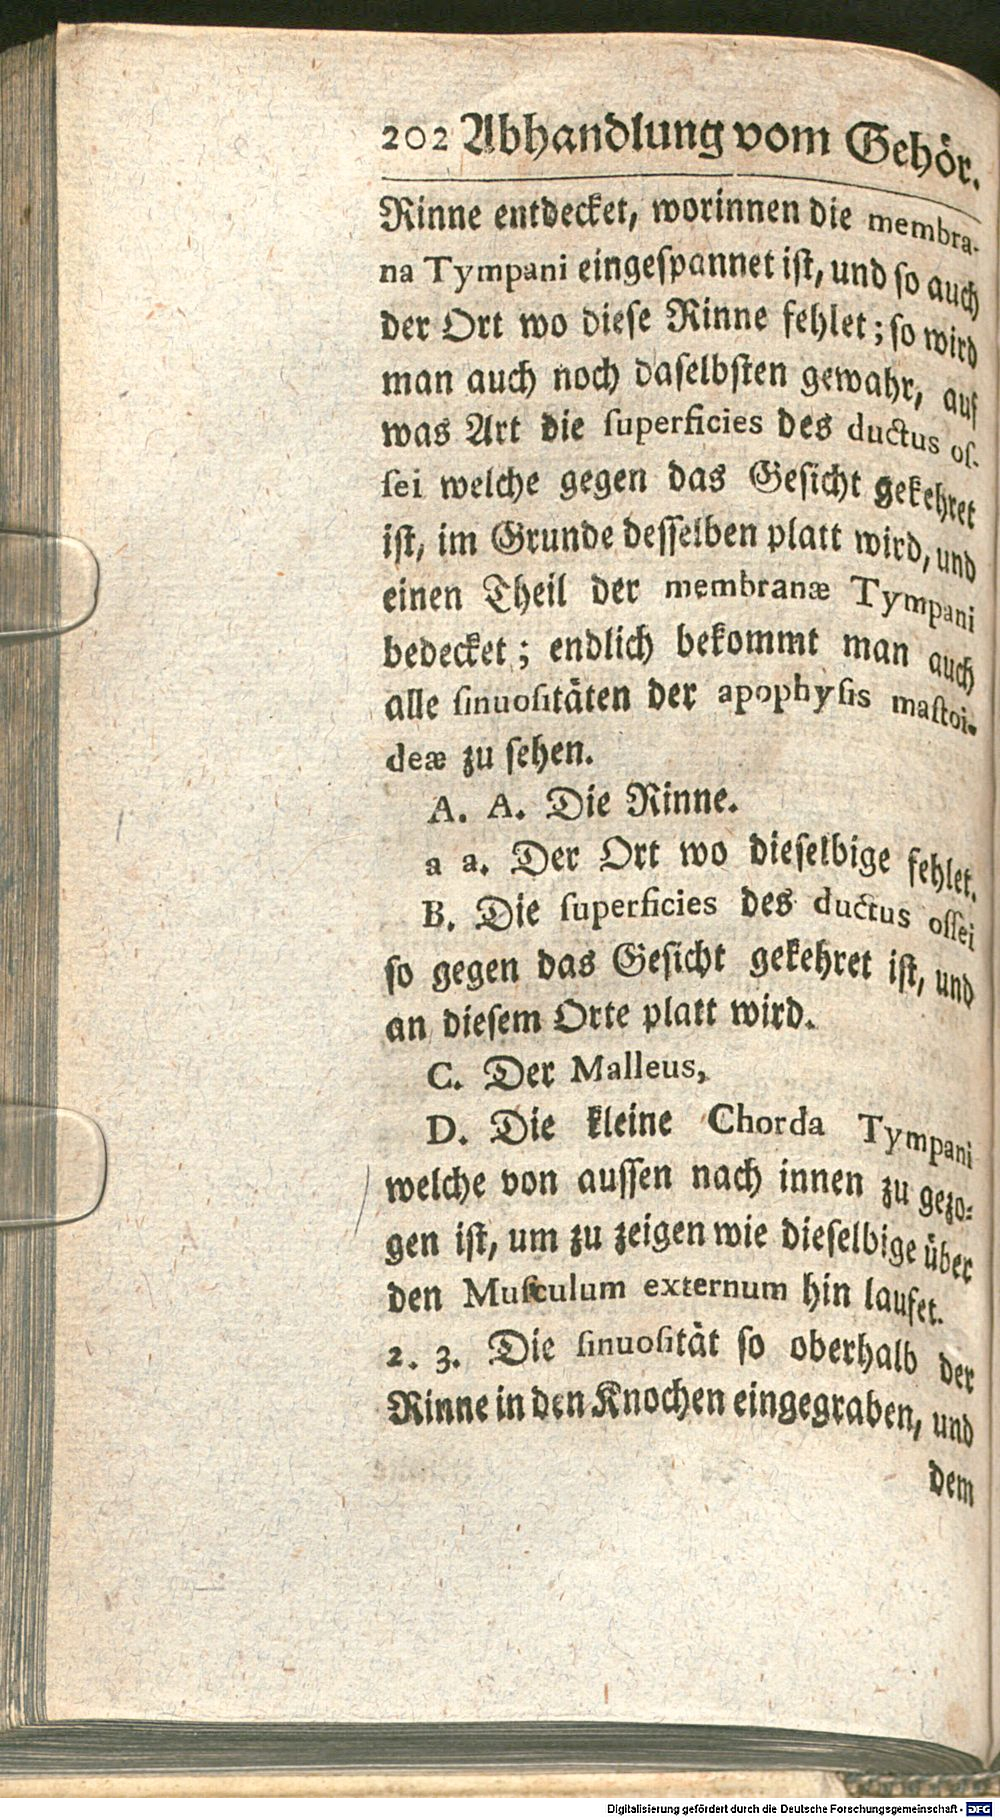 202 Abhandlung vom Gehör.
Rinne entdecket, worinnen die membra-
na Tympani eingespannet ist, und so auch
der Ort wo diese Rinne fehlet; so wird
man auch noch daselbsten gewahr, auf
was Art die ſuperficies des ductus oſ-
ſei welche gegen das Gesicht gekehret
ist, im Grunde desselben platt wird, und
einen Theil der membranæ Tympani
bedecket; endlich bekommt man auch
alle ſinuoſitäten der apophyſis maſtoi-
deæ zu sehen.
A. A. Die Rinne.
a a. Der Ort wo dieselbige fehlet.
B. Die ſuperficies des ductus oſſei
so gegen das Gesicht gekehret ist, und
an diesem Orte platt wird.
C. Der Malleus,
D. Die kleine Chorda Tympani
welche von aussen nach innen zu gezo-
gen ist, um zu zeigen wie dieselbige über
den Muſculum externum hin laufet.
2. 3. Die ſinuoſität so oberhalb der
Rinne in den Knochen eingegraben, und
dem
Digitalisierung gefördert durch die Deutsche Forschungsgemeinschaft - DFG